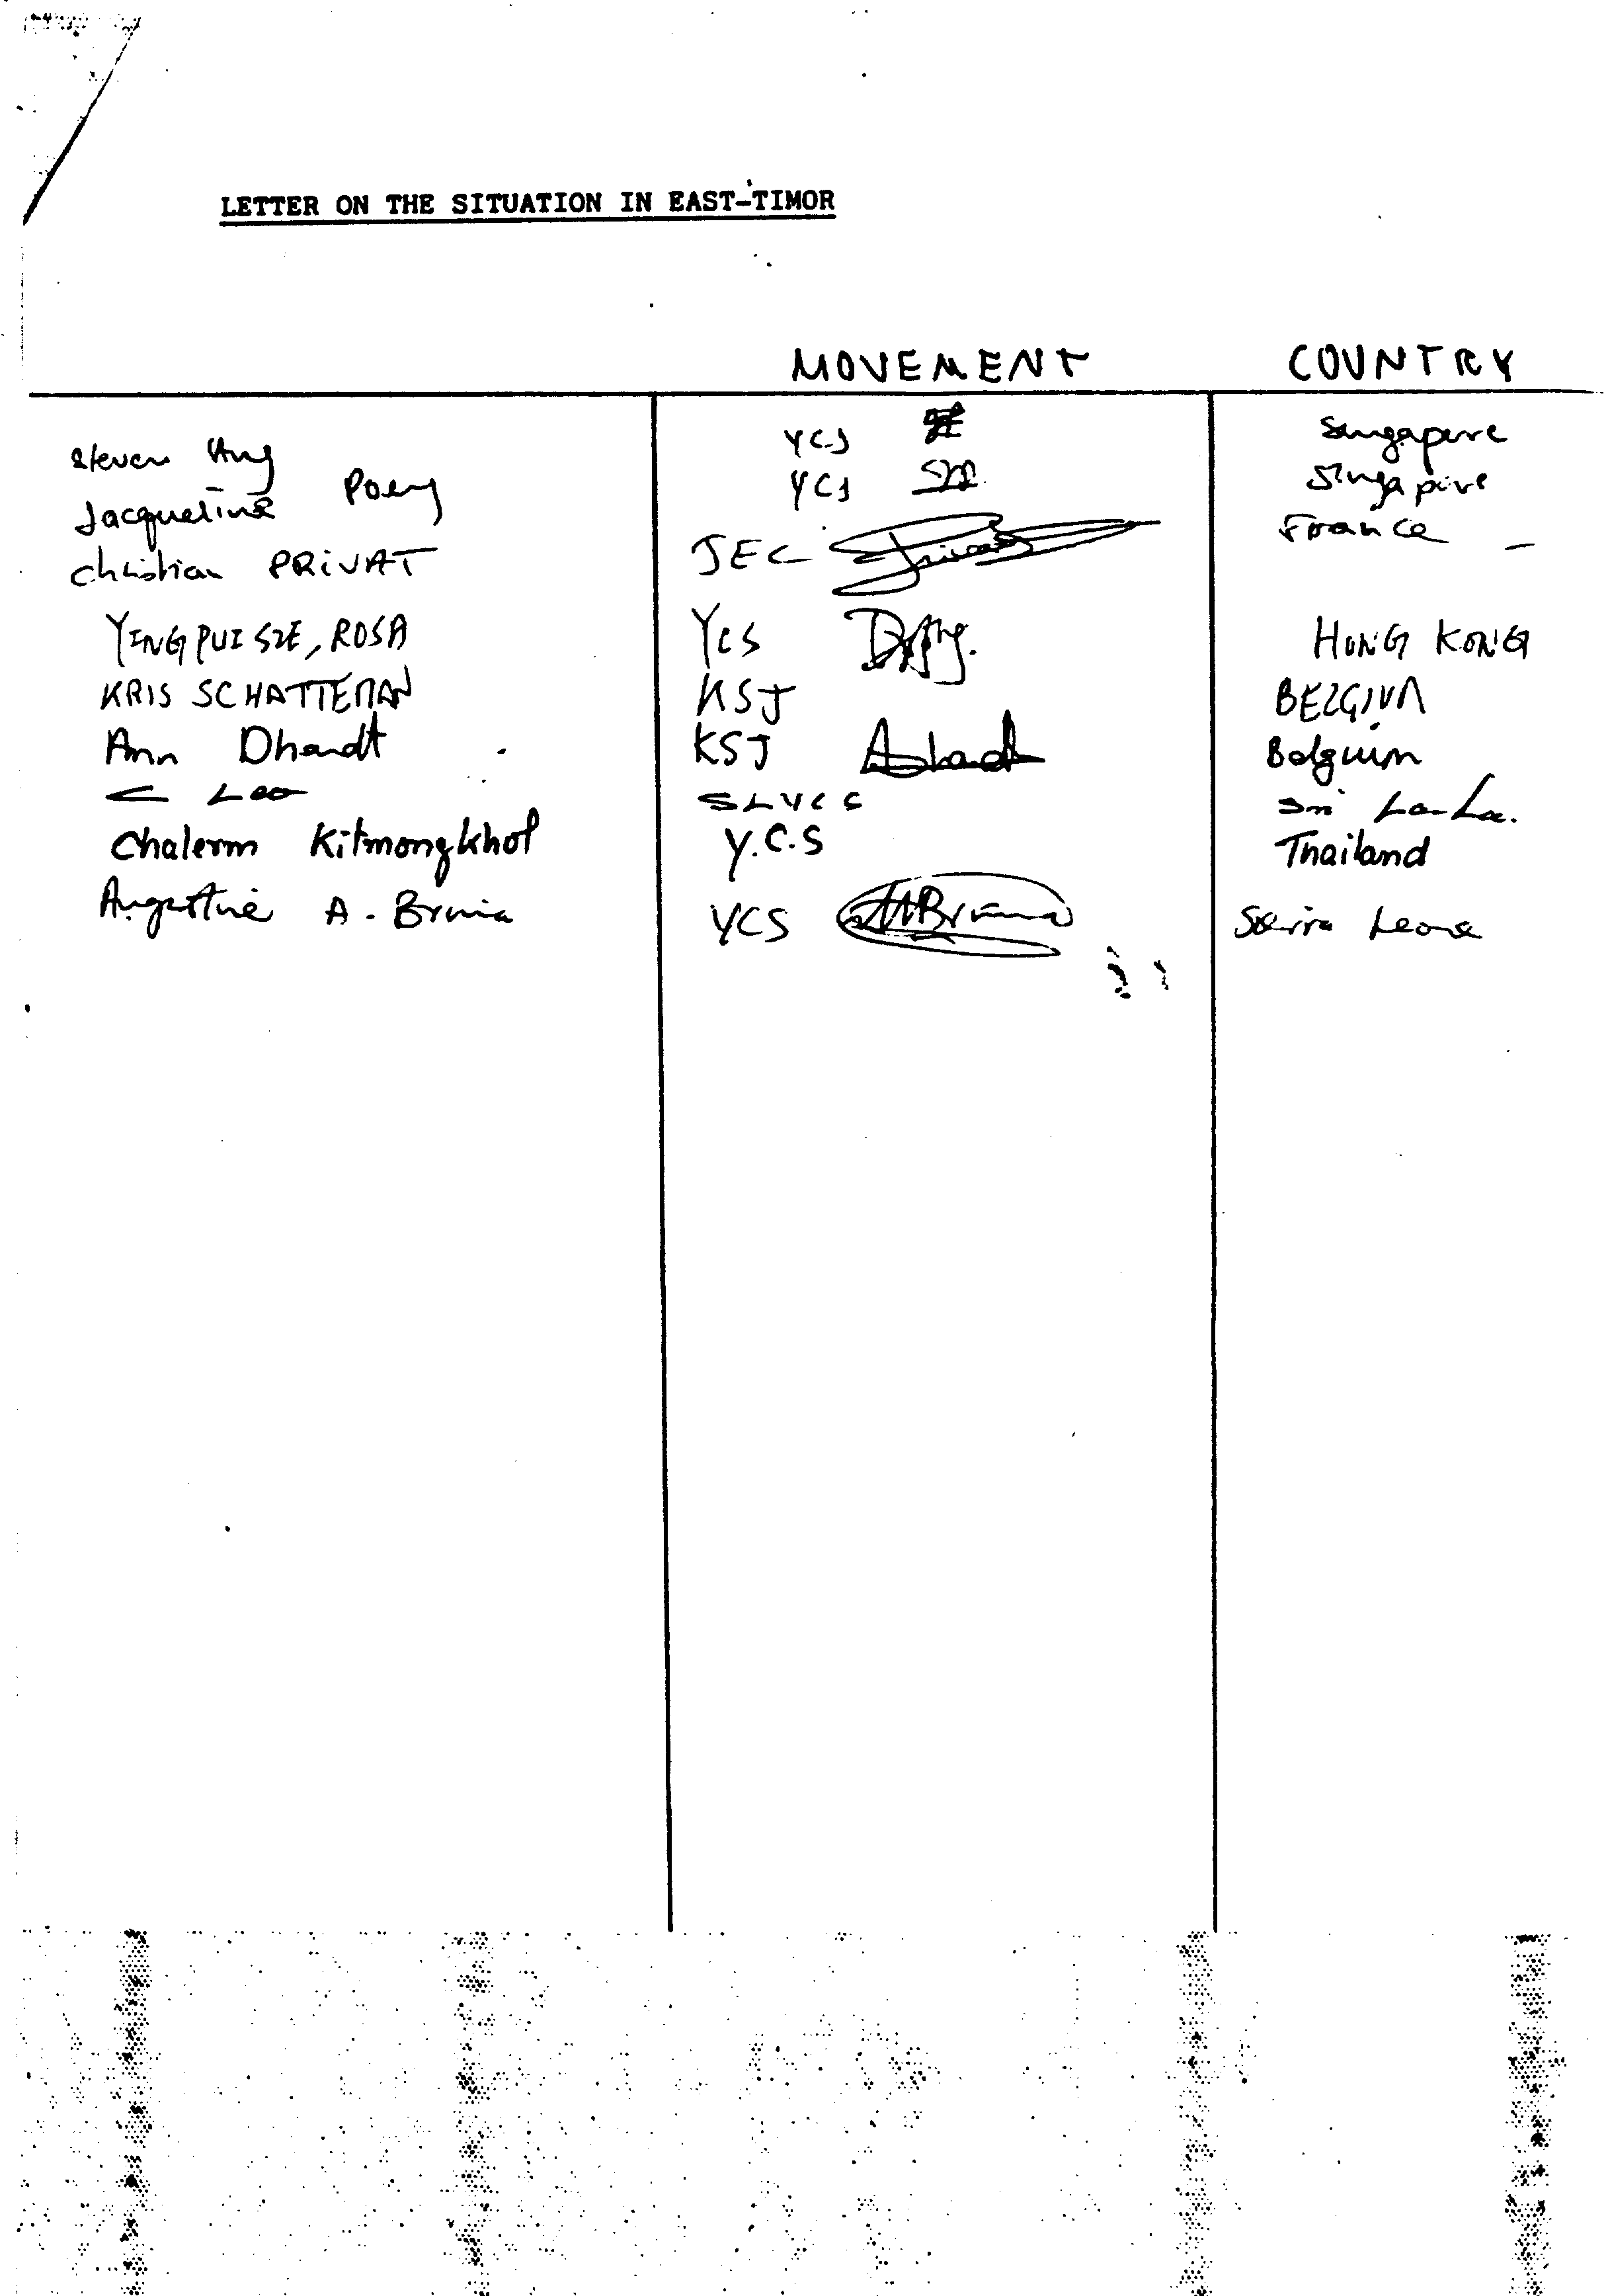 LETTER ON THE SITUATION IN EAST-TIMOR
MOVEMENT COUNTRY
Steven Ang YCS Singapore
Jacqueline Poey YCS Singapore
Christian PRIVAT JEC France
YING PUI SZE, ROSA YCS HONG KONG
KRIS SCHATTEMAN KSJ BELGIUM
Ann Dhandt KSJ Belguim
C Leo SLYCS Sri Lanka.
Chalerm Kitmongkhol Y.C.S Thailand
Augustine A. Bruma YCS Sierra Leone